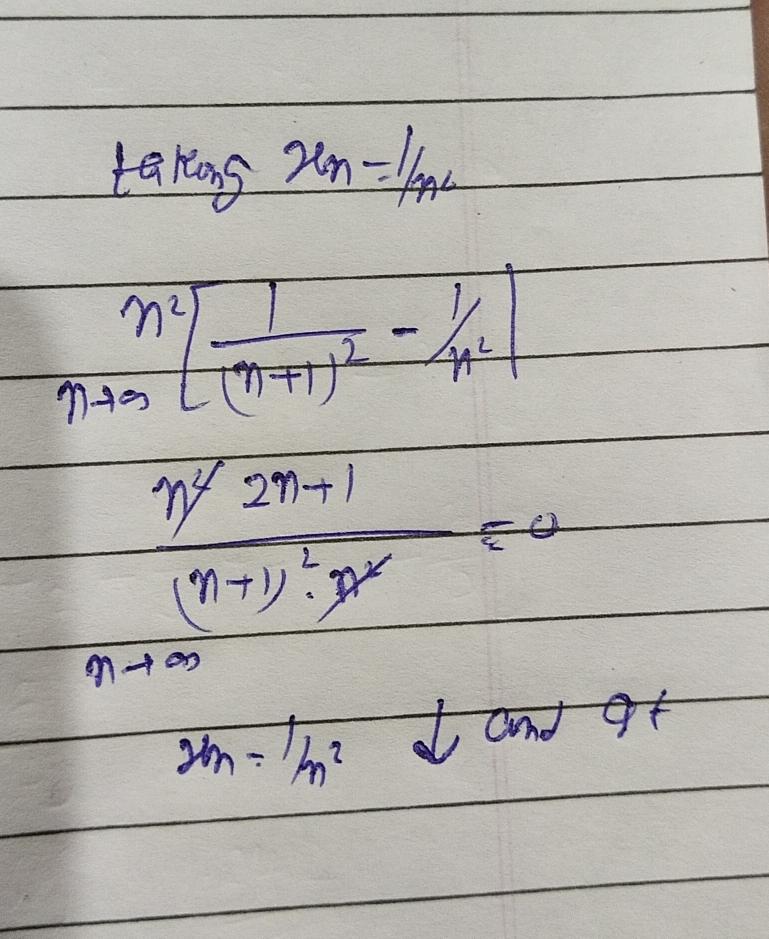 taking xn = 1/n²
n² [ 1/(n+1)² - 1/n² ]
n→∞
n² 2n+1 / (n+1)² · n² = 0
n→∞
xn = 1/n² ↓ and